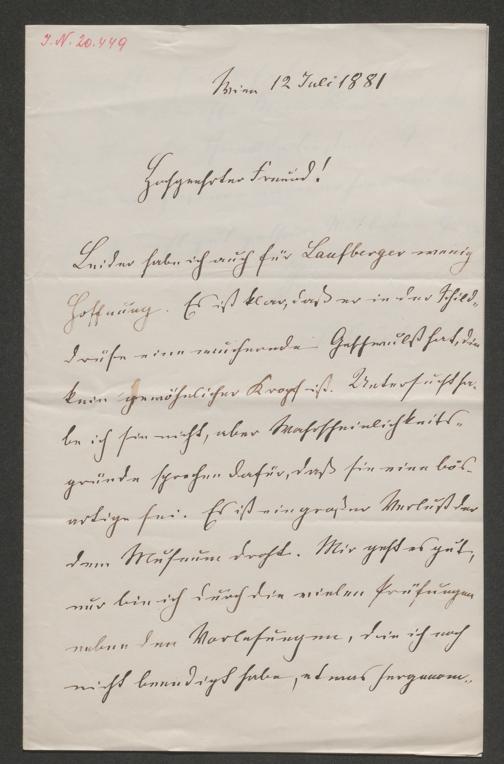 J.N. 20.449
Wien 12 Juli 1881
Hochgeehrter Freund!
Leider habe ich auch für Laufberger wenig
Hoffnung. Es ist klar, daß er in der Schild-
drüse eine wuchernde Geschwulst hat, die
kein gewöhnlicher Kropf ist. Untersucht ha-
be ich sie nicht, aber Wahrscheinlichkeits-
gründe sprechen dafür, daß sie eine bös-
artige sei. Es ist ein großer Verlust der
dem Museum droht. Mir geht es gut,
nur bin ich durch die vielen Prüfungen
neben den Vorlesungen, die ich noch
nicht beendigt habe, etwas hergenom-